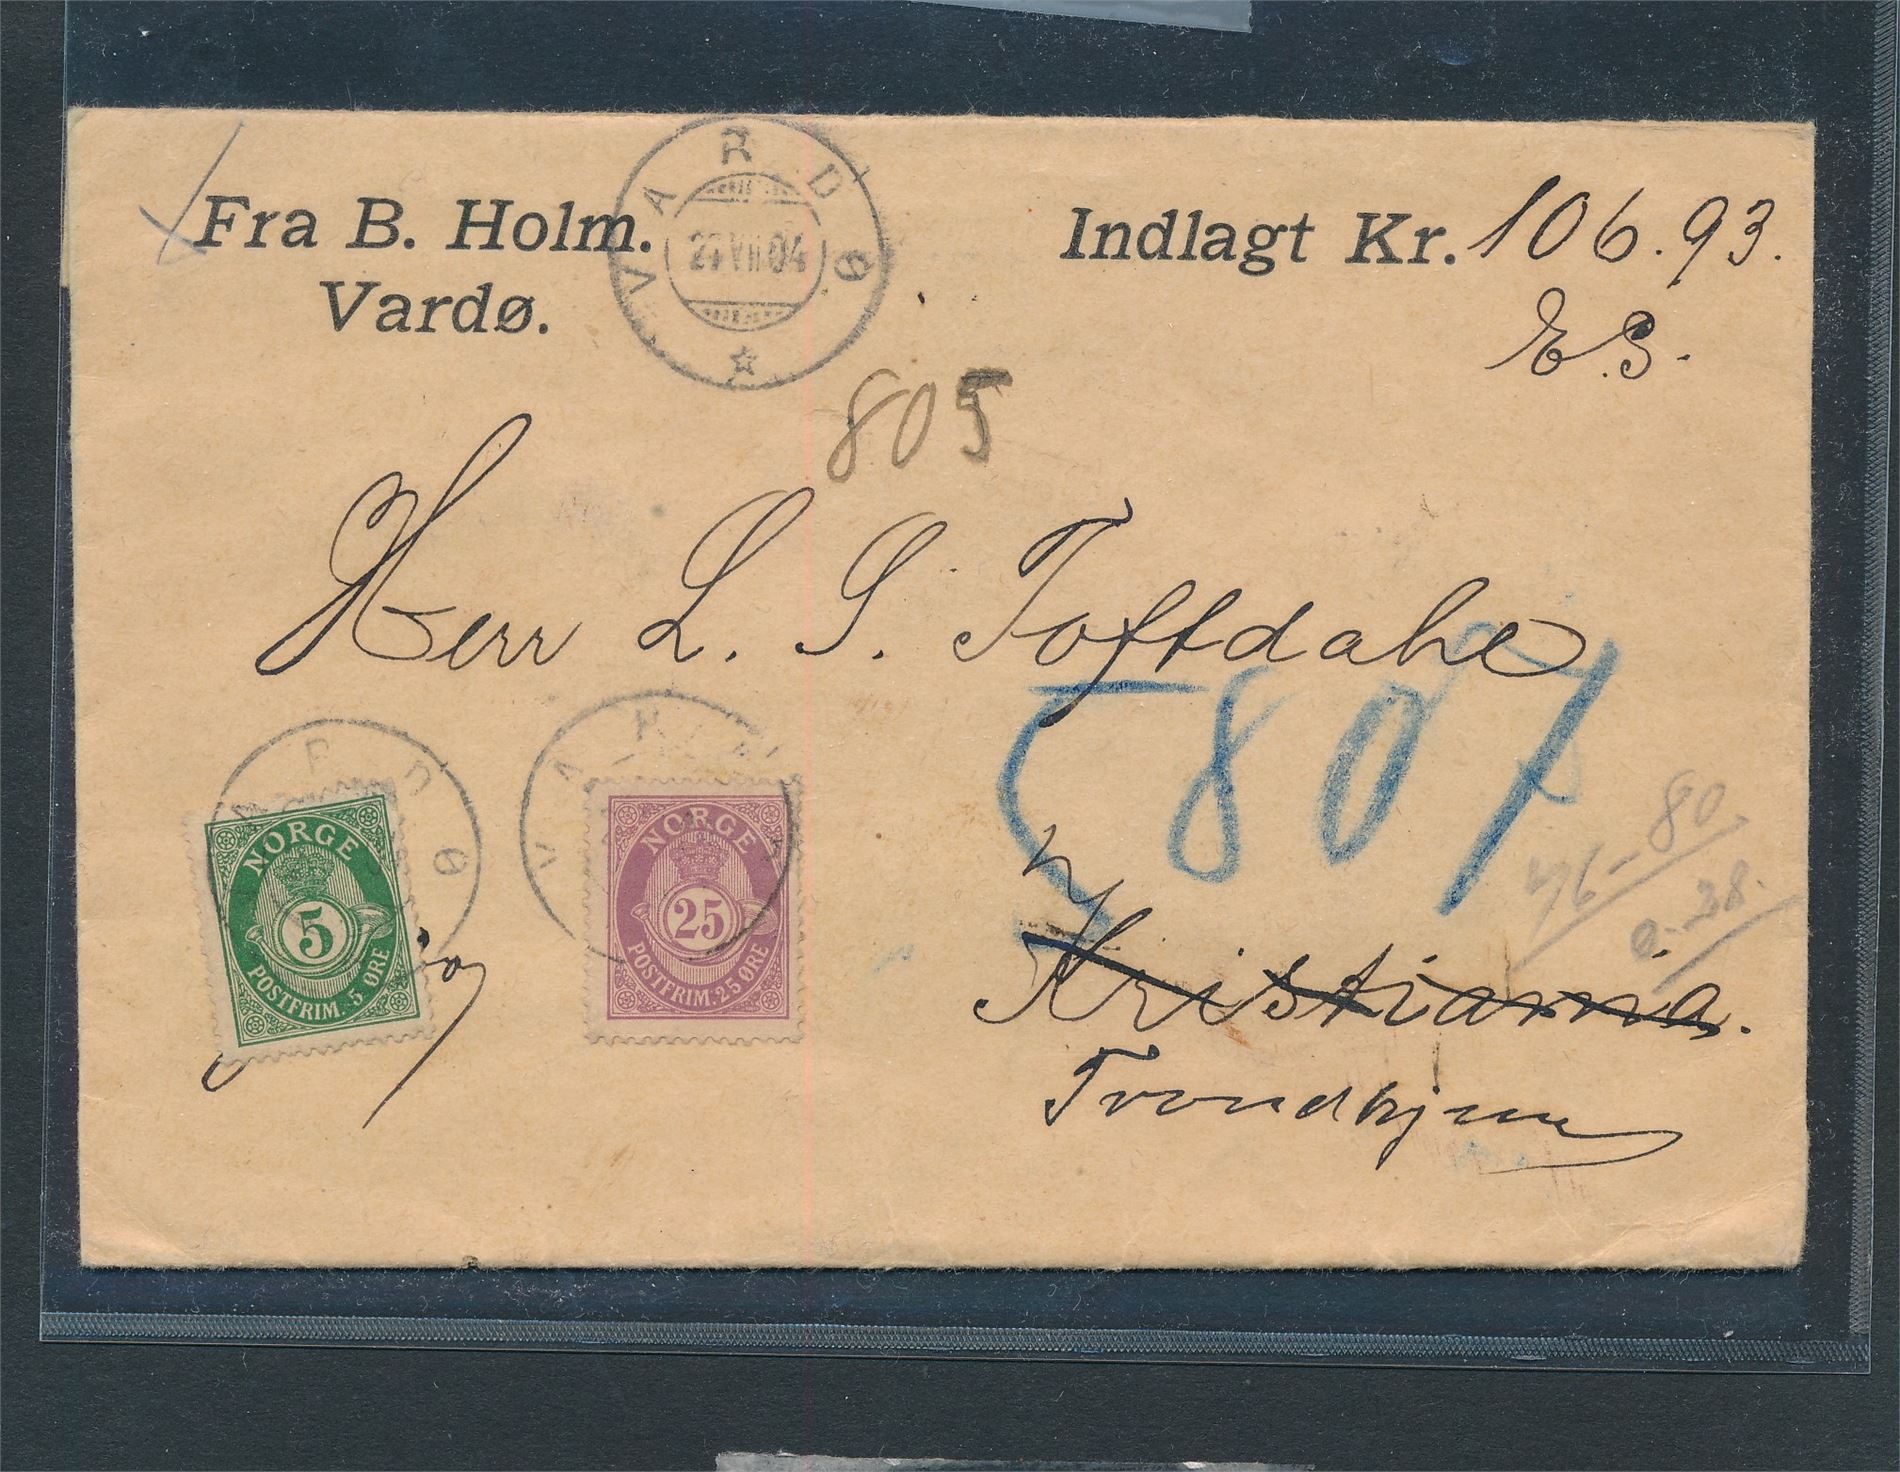 Fra B. Holm.
Vardø.
VARDØ
VII 04
Indlagt Kr. 106.93.
E.S.
805
Herr L. S. Toftdahl
807
VARDØ
NORGE
5
POSTFRIM. 5 ØRE
VAR
NORGE
25
POSTFRIM. 25 ØRE
Kristiania.
Trondhjem
76-80
0.38